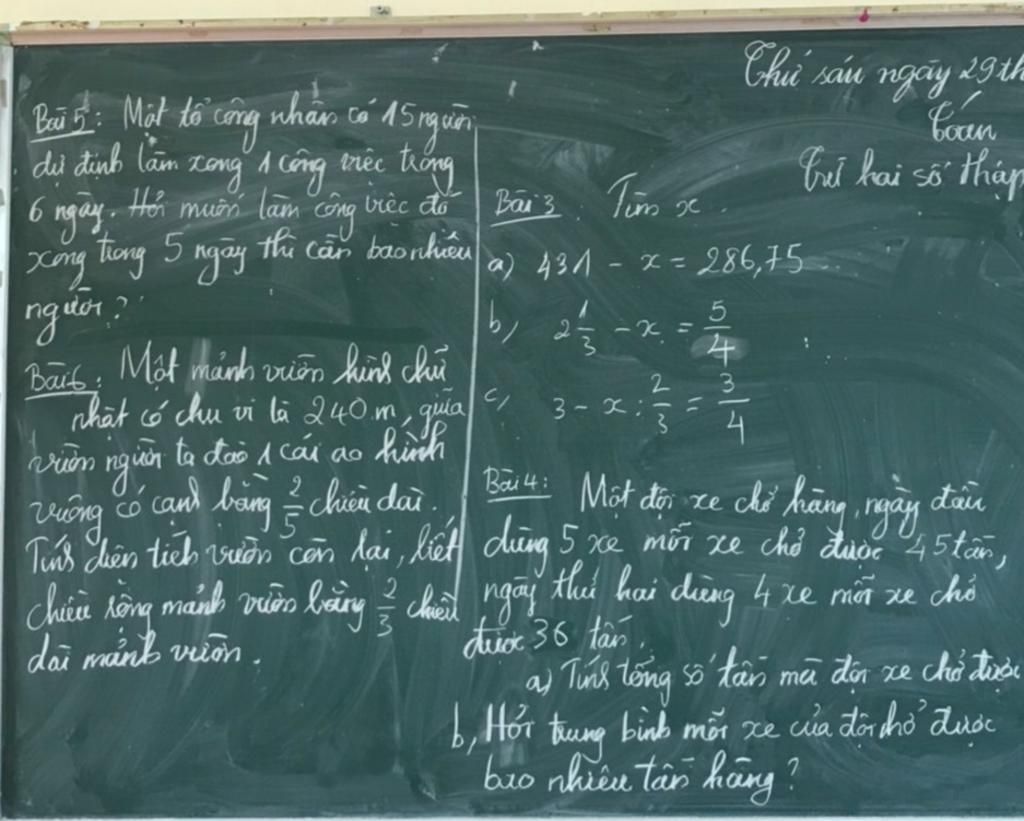 Thứ sáu ngày 29 th
Toán
Trừ hai số thập
Bài 5: Một tổ công nhân có 15 người
dự định làm xong 1 công việc trong
6 ngày. Hỏi muốn làm công việc đó
xong trong 5 ngày thì cần bao nhiêu
người?
Bài 6: Một mảnh vườn hình chữ
nhật có chu vi là 240 m, giữa
vườn người ta đào 1 cái ao hình
vuông có cạnh bằng 2/5 chiều dài.
Tính diện tích vườn còn lại, biết
chiều rộng mảnh vườn bằng 2/3 chiều
dài mảnh vườn.
Bài 3. Tìm x.
a) 431 - x = 286,75
b, 2 1/3 - x = 5/4
c, 3 - x : 2/3 = 3/4
Bài 4: Một đội xe chở hàng, ngày đầu
dùng 5 xe mỗi xe chở được 45 tấn,
ngày thứ hai dùng 4 xe mỗi xe chở
được 36 tấn.
a) Tính tổng số tấn mà đội xe chở được
b, Hỏi trung bình mỗi xe của đội chở được
bao nhiêu tấn hàng?